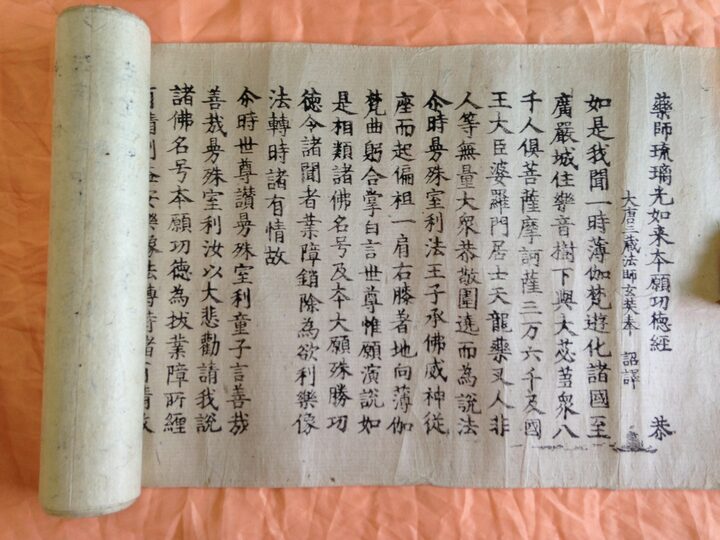 藥師琉璃光如来本願功德經 恭
大唐三藏法師玄奘奉 詔譯
如是我聞一時薄伽梵遊化諸國至
廣嚴城住樂音樹下與大苾芻衆八
千人俱菩薩摩訶薩三万六千及國
王大臣婆羅門居士天龍藥叉人非
人等無量大衆恭敬圍遶而為說法
尒時曼殊室利法王子承佛威神従
座而起偏袒一肩右膝著地向薄伽
梵曲躬合掌白言世尊惟願演說如
是相類諸佛名号及本大願殊勝功
德令諸聞者業障銷除為欲利樂像
法轉時諸有情故
尒時世尊讃曼殊室利童子言善哉
善哉曼殊室利汝以大悲勸請我說
諸佛名号本願功德為拔業障所纏
有情利益安樂像法轉時諸有情故